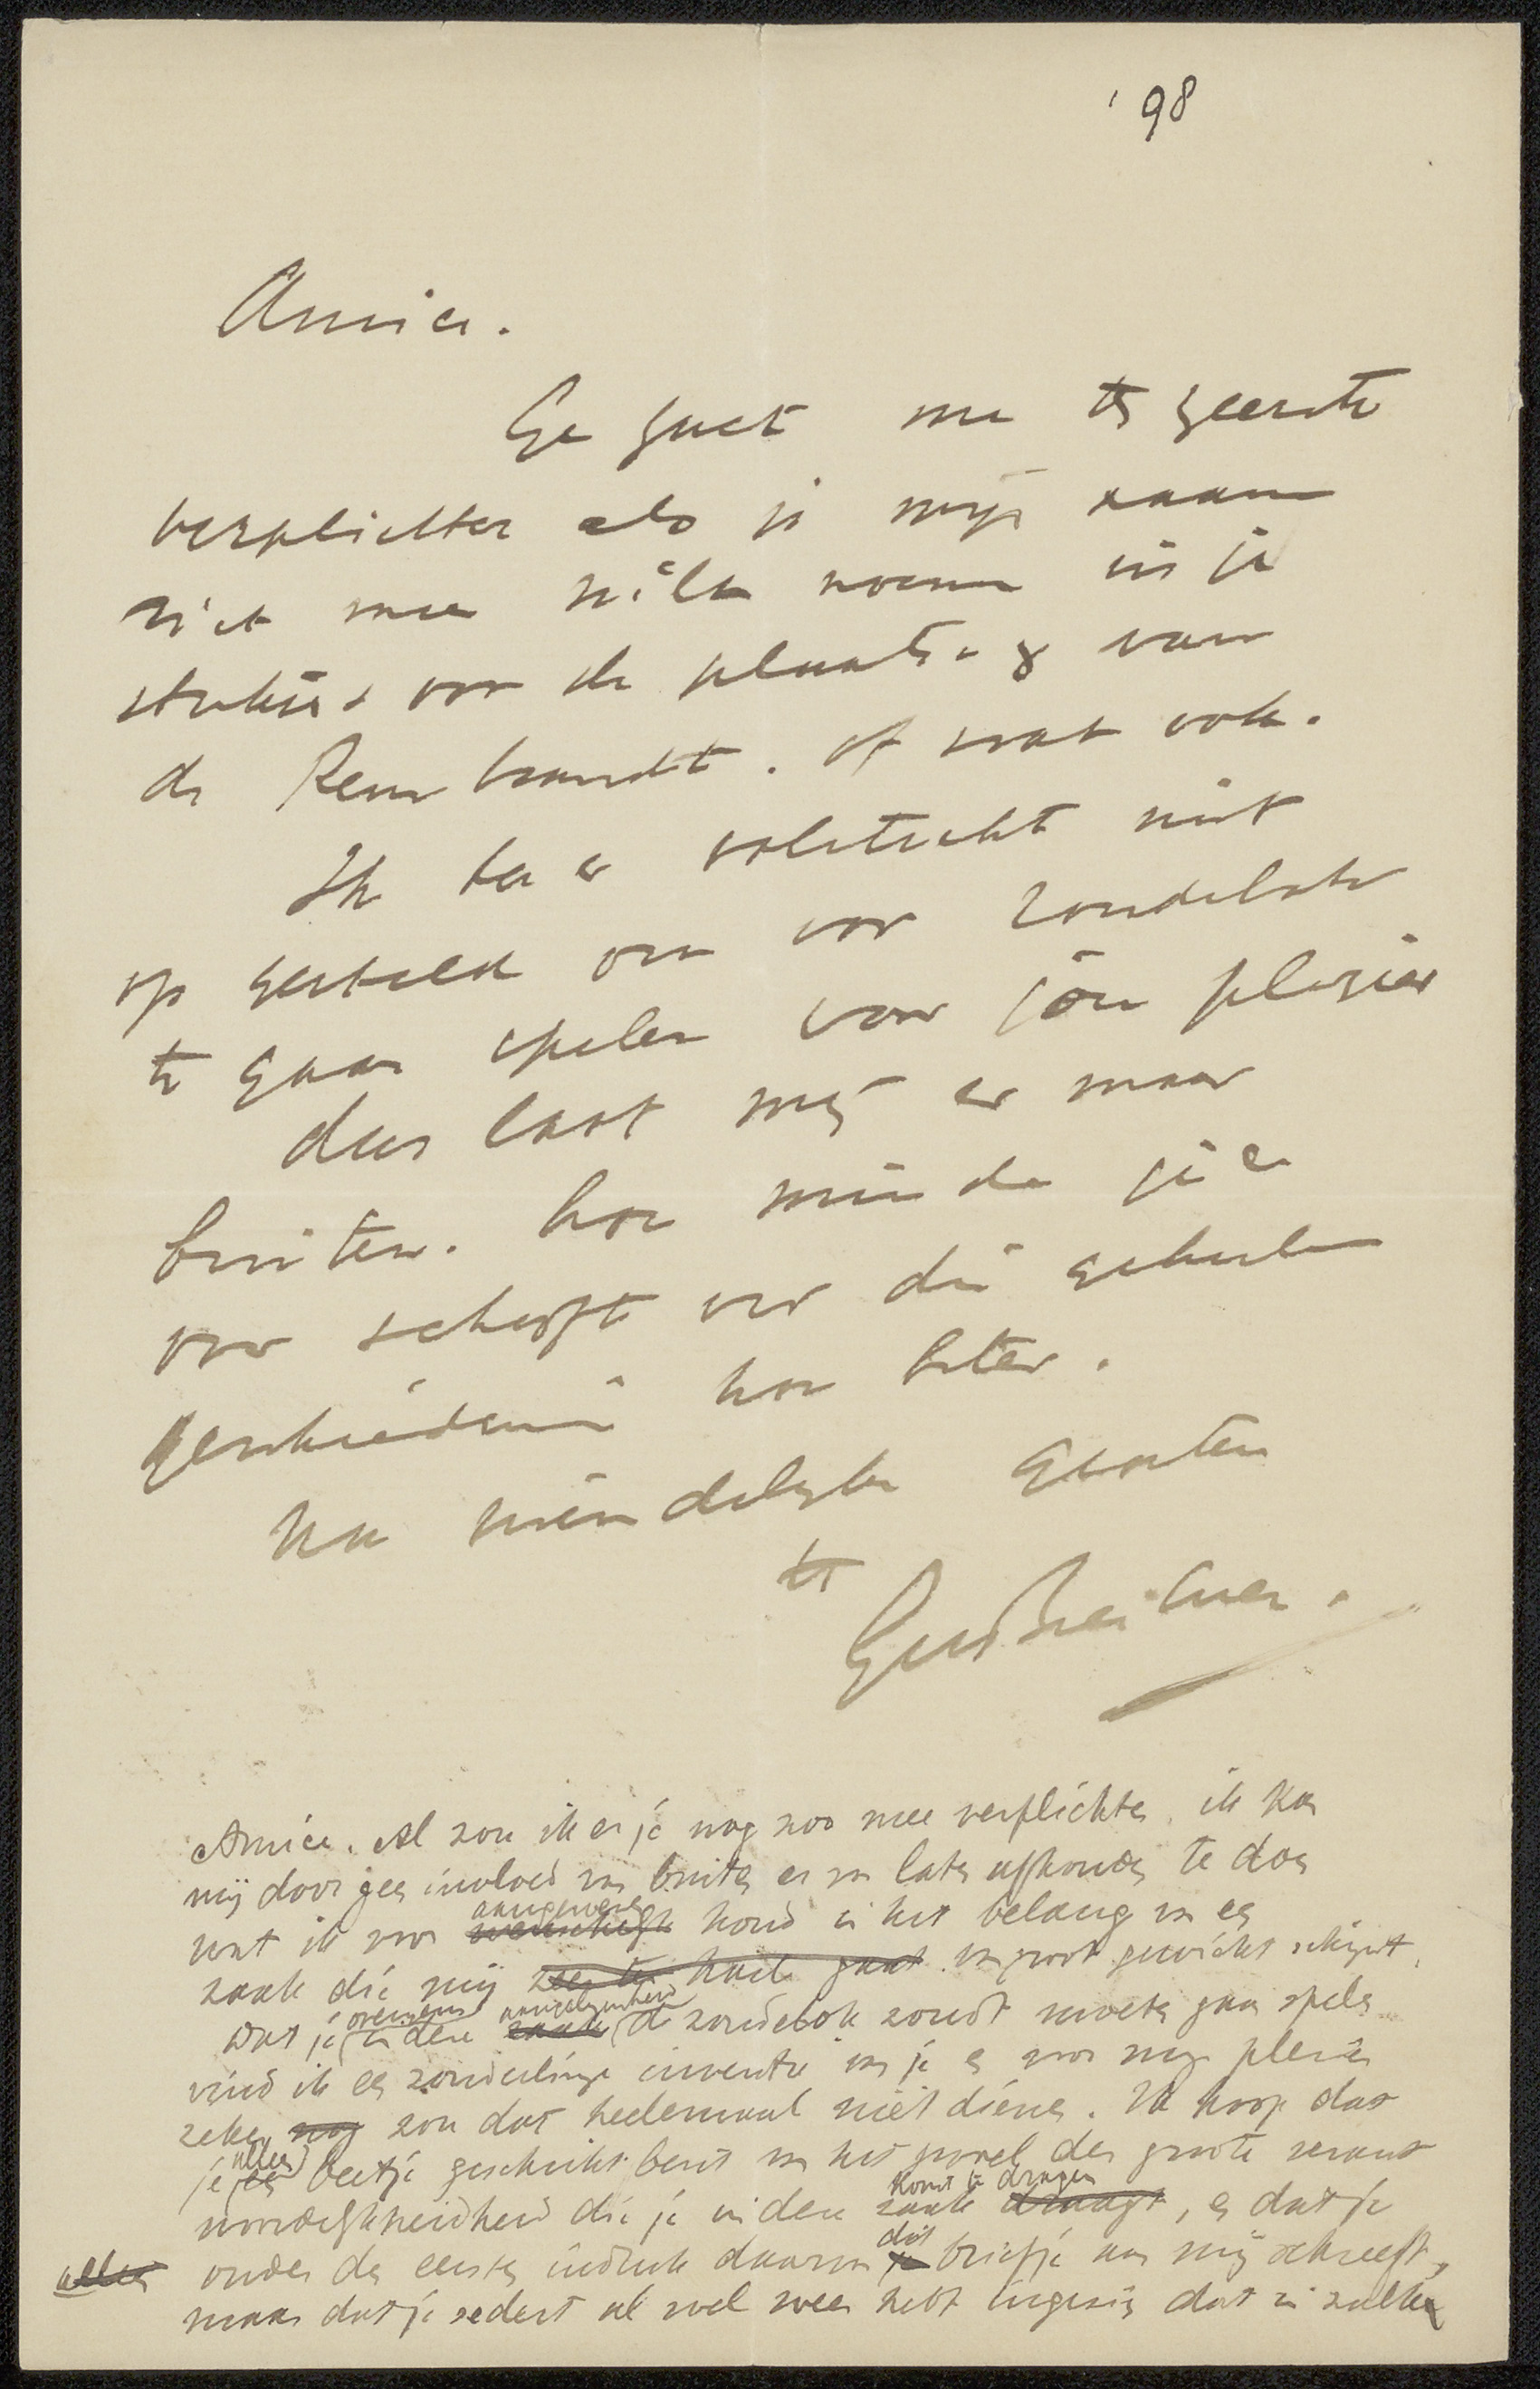 '98
Amice.
Ge zoudt me ten zeerste
verplichten als je mijn naam
niet meer wilde noemen in je
stukjes over de plaatsing van
de Rembrandt. of wat ook.
Ik ben er volstrekt niet
op gesteld om voor zondebok
te gaan spelen voor jou plezier
dus laat mij er maar
buiten. hoe minder je er
over schrijft over die geheele
geschiedenis hoe beter.
na vriendelijke groeten
tt
Breitner.
Amice. Al zou ik er je nog zoo mee verplichten, ik kan
mij door geen invloed van buiten er van laten afhouden te doen
wat ik voor aangewezen houd in het belang van een
zaak die mij zeer ter harte gaat van groot gewicht schijnt.
Dat je overigens in deze zaak aangelegenheid de zondebok zoudt moeten gaan spelen
vind ik een zonderlinge inventie van je en voor mijn plezier
zeker nog zou dat heelemaal niet dienen. Ik hoop dat
je alleen een beetje geschrikt bent van het gevoel der groote verant
woordelijkheid die je in deze zaak draagt komt te dragen, en dat je
onder den eersten indruk daarvan je dit briefje aan mij schreeft,
alleen
maar dat je sedert al wel weer hebt ingezien dat in zulke